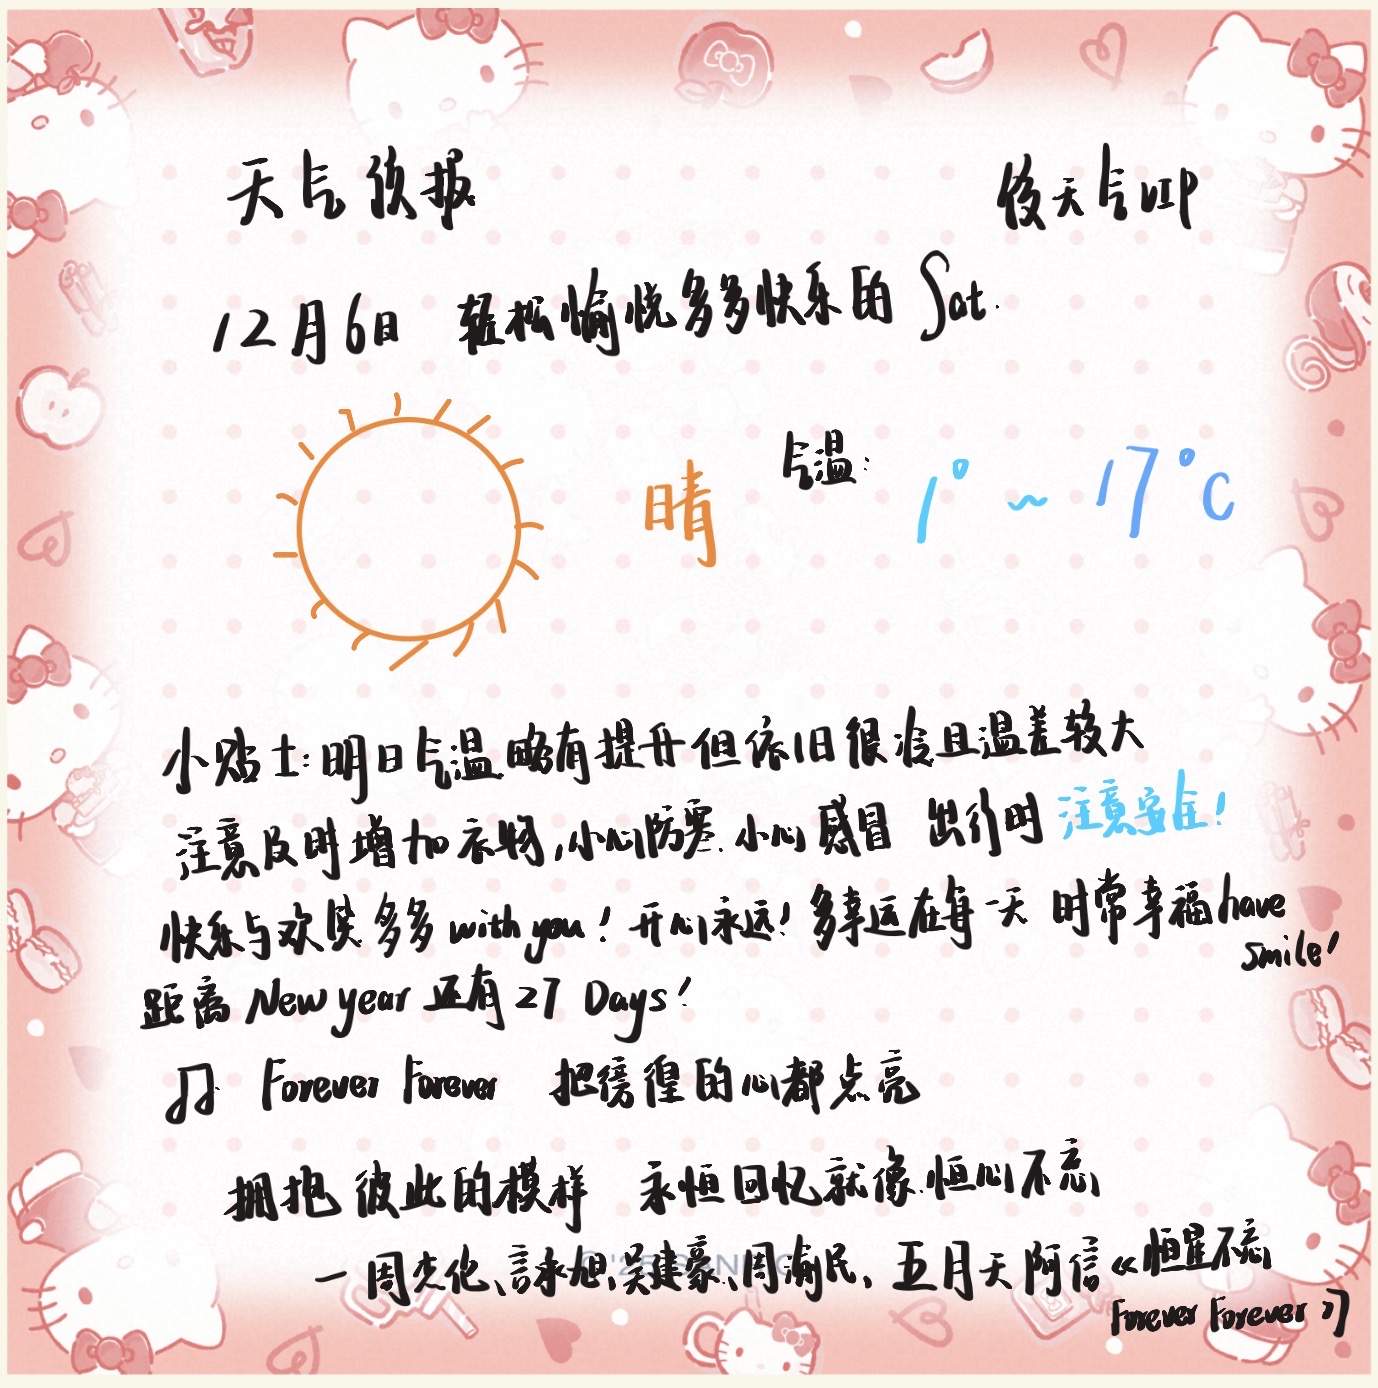 天气侦报 後天气VIP
12月6日 轻松愉悦多多快乐的 Sat.
晴 气温: 1° ~ 17°C
小贴士:明日气温略有提升但依旧很冷且温差较大
注意及时增加衣物,小心防寒.小心感冒 出行时注意安全!
快乐与欢笑多多with you!开心永远!多幸运在每一天 时常幸福have
smile!
距离New year还有27 Days!
♫ Forever Forever 把徬徨的心都点亮
拥抱彼此的模样 永恒回忆就像恒心不忘
—周光佗、言承旭、吴建豪、周渝民、五月天阿信《恒星不忘
Forever Forever》